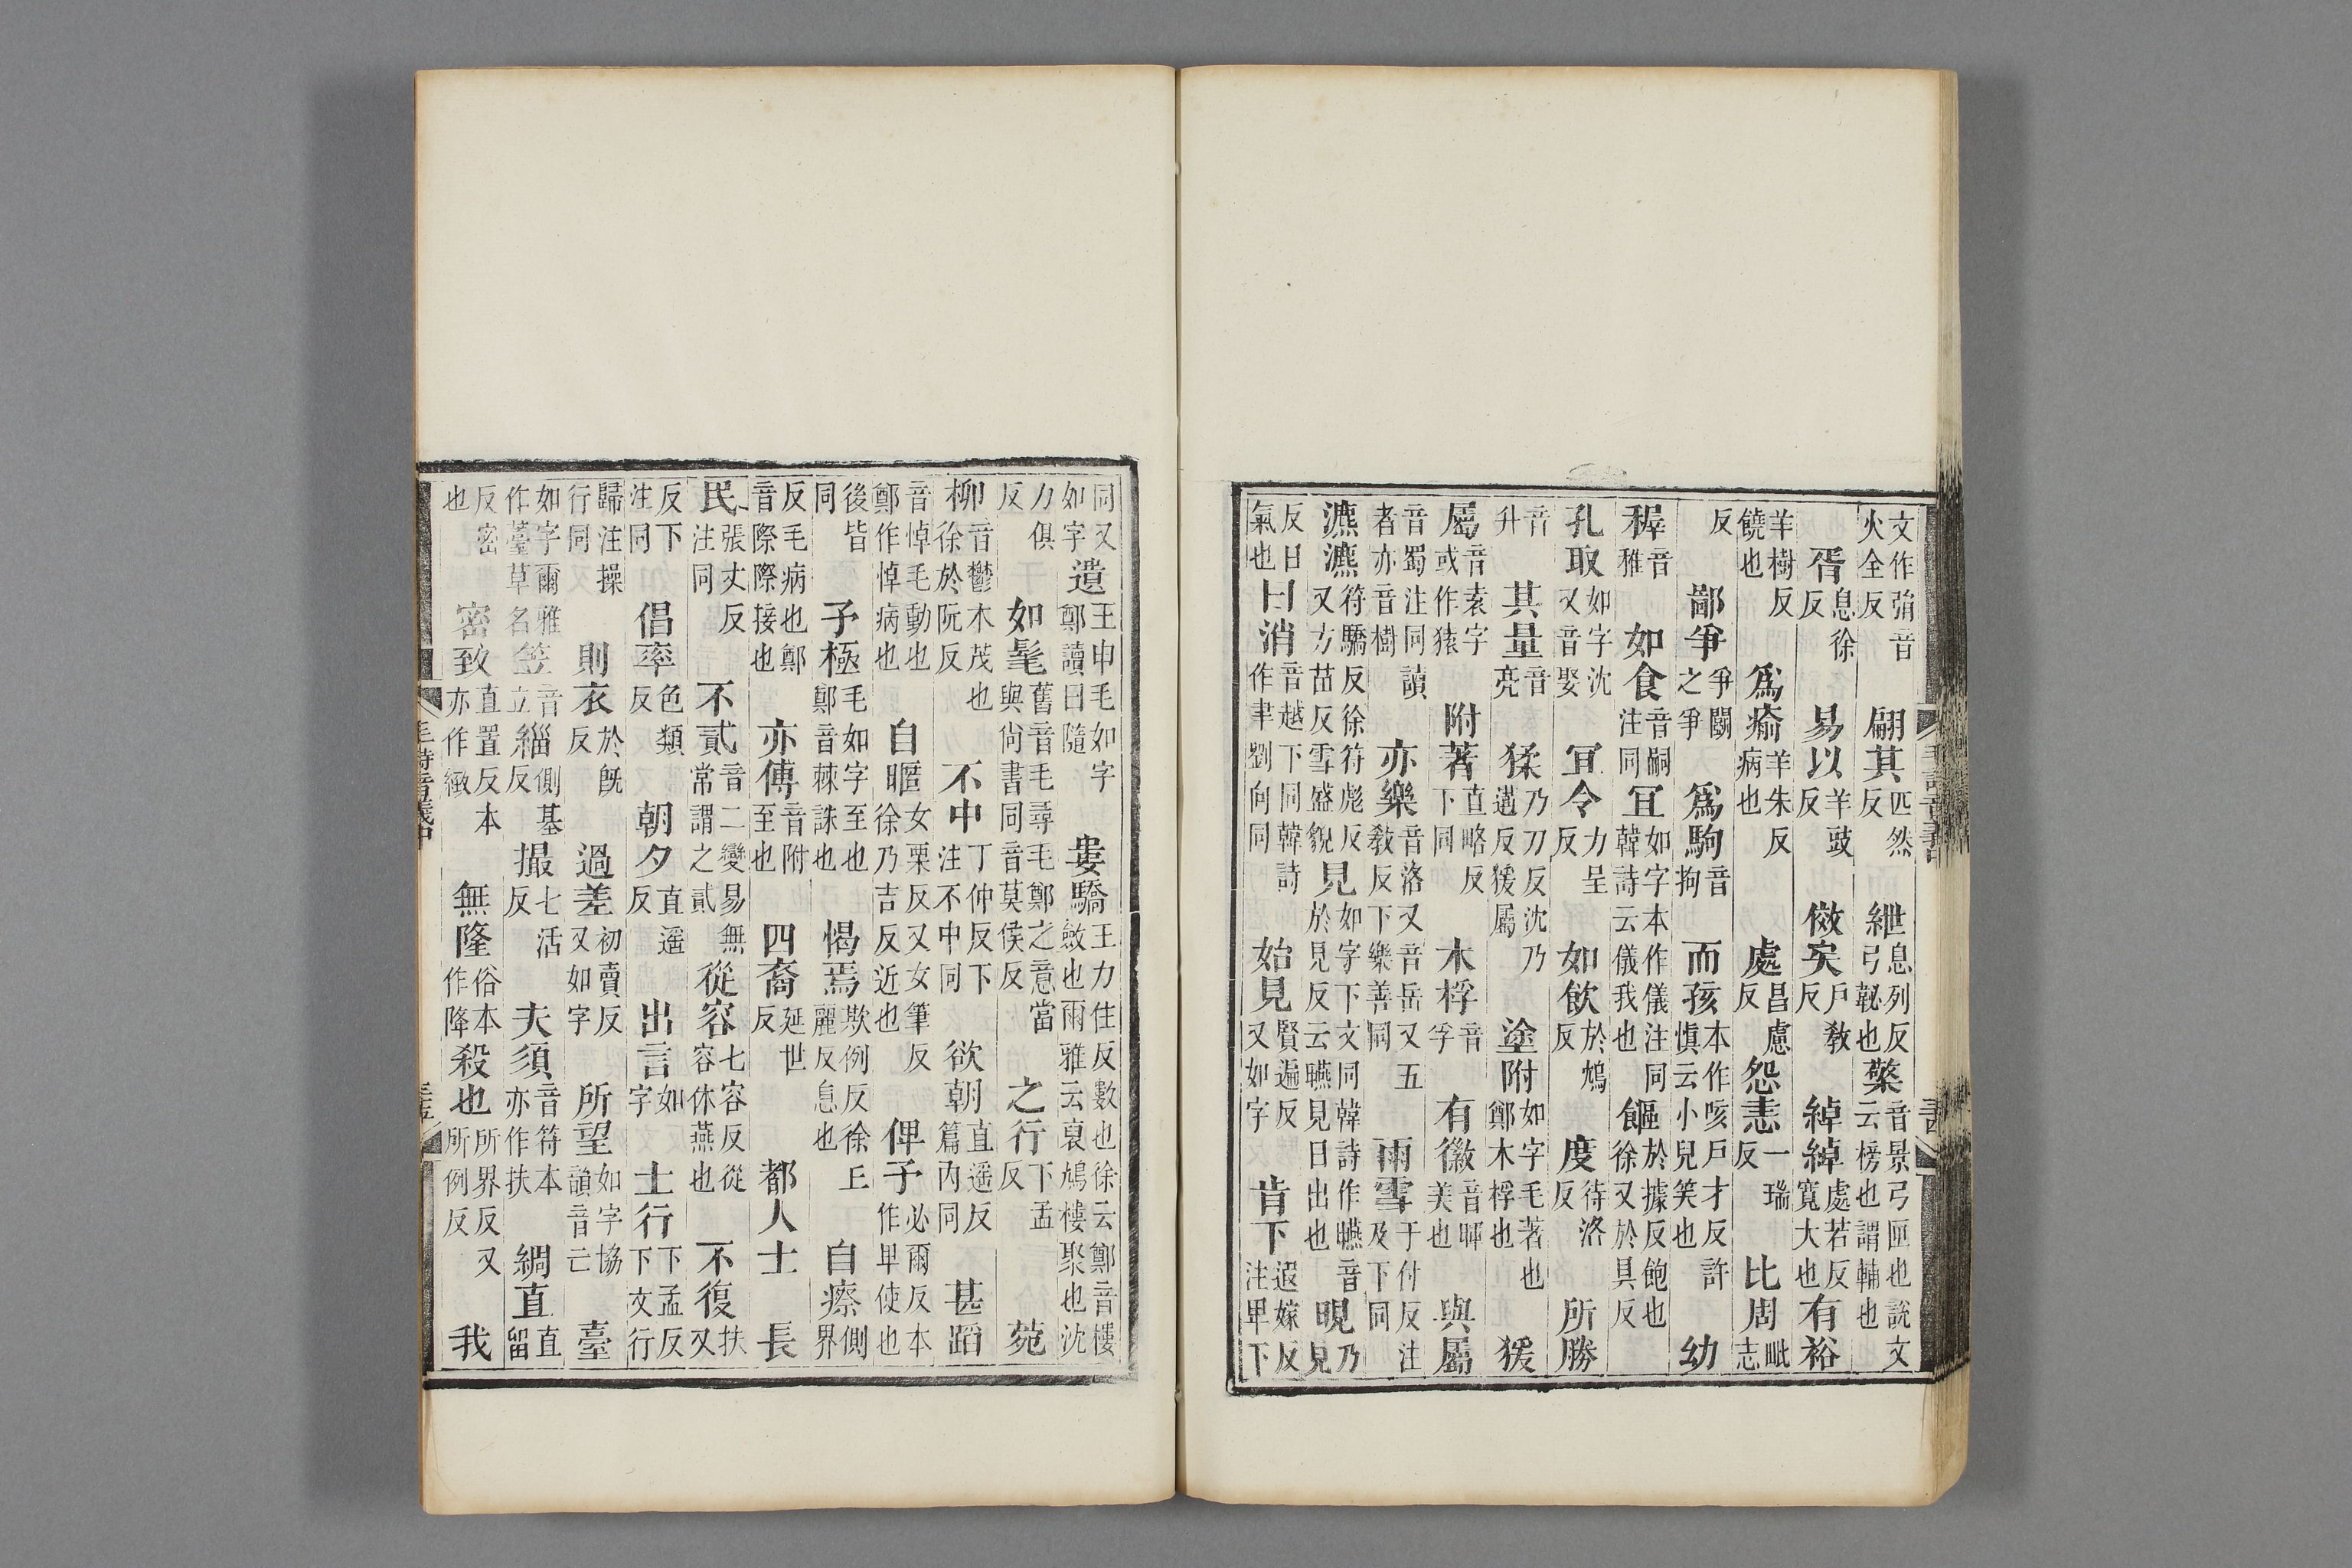 文作弲音火全反翩其匹然反紲息列反弓䪐也檠音景弓匣也說文云榜也謂輔也
胥息徐反易以羊豉反傚矣戶教反綽綽處若反寬大也有裕
羊樹反饒也爲瘉羊朱反病也處昌慮反怨恚一瑞反比周毗志
反鄙爭爭鬬之爭爲駒音拘而孩本作咳戶才反許愼云小兒笑也幼
稺音雅如食音嗣注同宜如字本作儀注同韓詩云儀我也饇於據反飽也徐又於具反
孔取如字沈又音娶宜令力呈反如飲於鴆反度待洛反所勝
音升其量音亮猱乃刀反沈乃遘反猨屬塗附如字毛著也鄭木桴也猨
屬音袁字或作猿附著直略反下同木桴音孚有徽音暉美也與屬
音蜀注同讀者亦音樹亦樂音洛又音岳又五教反下樂善同雨雪于付反注及下同
瀌瀌符驕反徐符彪反又方苗反雪盛貌見如字下文同韓詩作曣音於見反云曣見日出也晛乃見
反日氣也曰消音越下同韓詩作聿劉向同始見賢遍反又如字肯下遐嫁反注畢下
同又如字遺王申毛如字鄭讀曰隨婁驕王力住反數也徐云鄭音樓斂也爾雅云裒鳩樓聚也沈
力俱反如髦舊音毛尋毛鄭之意當與尙書同音莫侯反之行下孟反菀
柳音鬱木茂也徐於阮反不中丁仲反下注不中同欲朝直遥反篇內同甚蹈
音悼毛動也鄭作悼病也自暱女栗反又女筆反徐乃吉反近也俾予必爾反本作卑使也
後皆同予極毛如字至也鄭音棘誅也愒焉欺例反徐丘麗反息也自瘵側界
反毛病也鄭音際際接也亦傅音附至也四裔延世反都人士長
民張丈反注同不貳音二變易無常謂之貳從容七容反從容休燕也不復扶又
反下注同倡率色類反朝夕直遥反出言如字士行下孟反下文行
歸注操行同則衣於旣反過差初賣反又如字所望如字協韻音亡臺
如字爾雅作薹草名笠音立緇側基反撮七活反夫須音符本亦作扶綢直直留
反密也密致直置反本亦作緻無隆俗本作降殺也所界反又所例反我